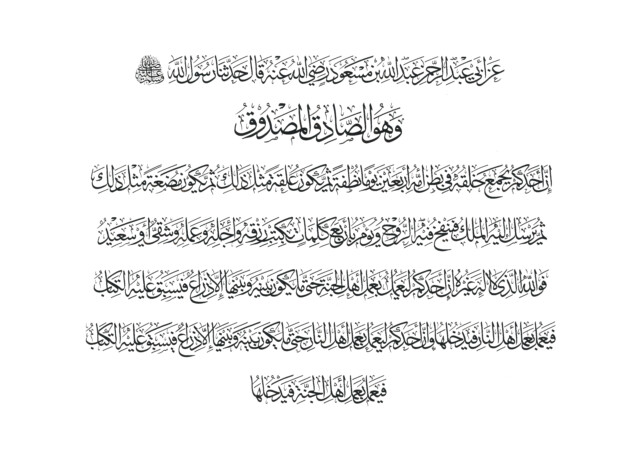 عَنْ أَبِي عَبْدِ الرَّحْمَنِ عَبْدِ اللَّهِ بْنِ مَسْعُودٍ رَضِيَ اللَّهُ عَنْهُ قَالَ حَدَّثَنَا رَسُولُ اللَّهِ ﷺ
وَهُوَ الصَّادِقُ الْمَصْدُوقُ
إِنَّ أَحَدَكُمْ يُجْمَعُ خَلْقُهُ فِي بَطْنِ أُمِّهِ أَرْبَعِينَ يَوْمًا نُطْفَةً ثُمَّ يَكُونُ عَلَقَةً مِثْلَ ذَلِكَ ثُمَّ يَكُونُ مُضْغَةً مِثْلَ ذَلِكَ
ثُمَّ يُرْسَلُ إِلَيْهِ الْمَلَكُ فَيَنْفُخُ فِيهِ الرُّوحَ وَيُؤْمَرُ بِأَرْبَعِ كَلِمَاتٍ بِكَتْبِ رِزْقِهِ وَأَجَلِهِ وَعَمَلِهِ وَشَقِيٌّ أَوْ سَعِيدٌ
فَوَاللَّهِ الَّذِي لَا إِلَهَ غَيْرُهُ إِنَّ أَحَدَكُمْ لَيَعْمَلُ بِعَمَلِ أَهْلِ الْجَنَّةِ حَتَّى مَا يَكُونَ بَيْنَهُ وَبَيْنَهَا إِلَّا ذِرَاعٌ فَيَسْبِقُ عَلَيْهِ الْكِتَابُ
فَيَعْمَلُ بِعَمَلِ أَهْلِ النَّارِ فَيَدْخُلُهَا وَإِنَّ أَحَدَكُمْ لَيَعْمَلُ بِعَمَلِ أَهْلِ النَّارِ حَتَّى مَا يَكُونَ بَيْنَهُ وَبَيْنَهَا إِلَّا ذِرَاعٌ فَيَسْبِقُ عَلَيْهِ الْكِتَابُ
فَيَعْمَلُ بِعَمَلِ أَهْلِ الْجَنَّةِ فَيَدْخُلُهَا